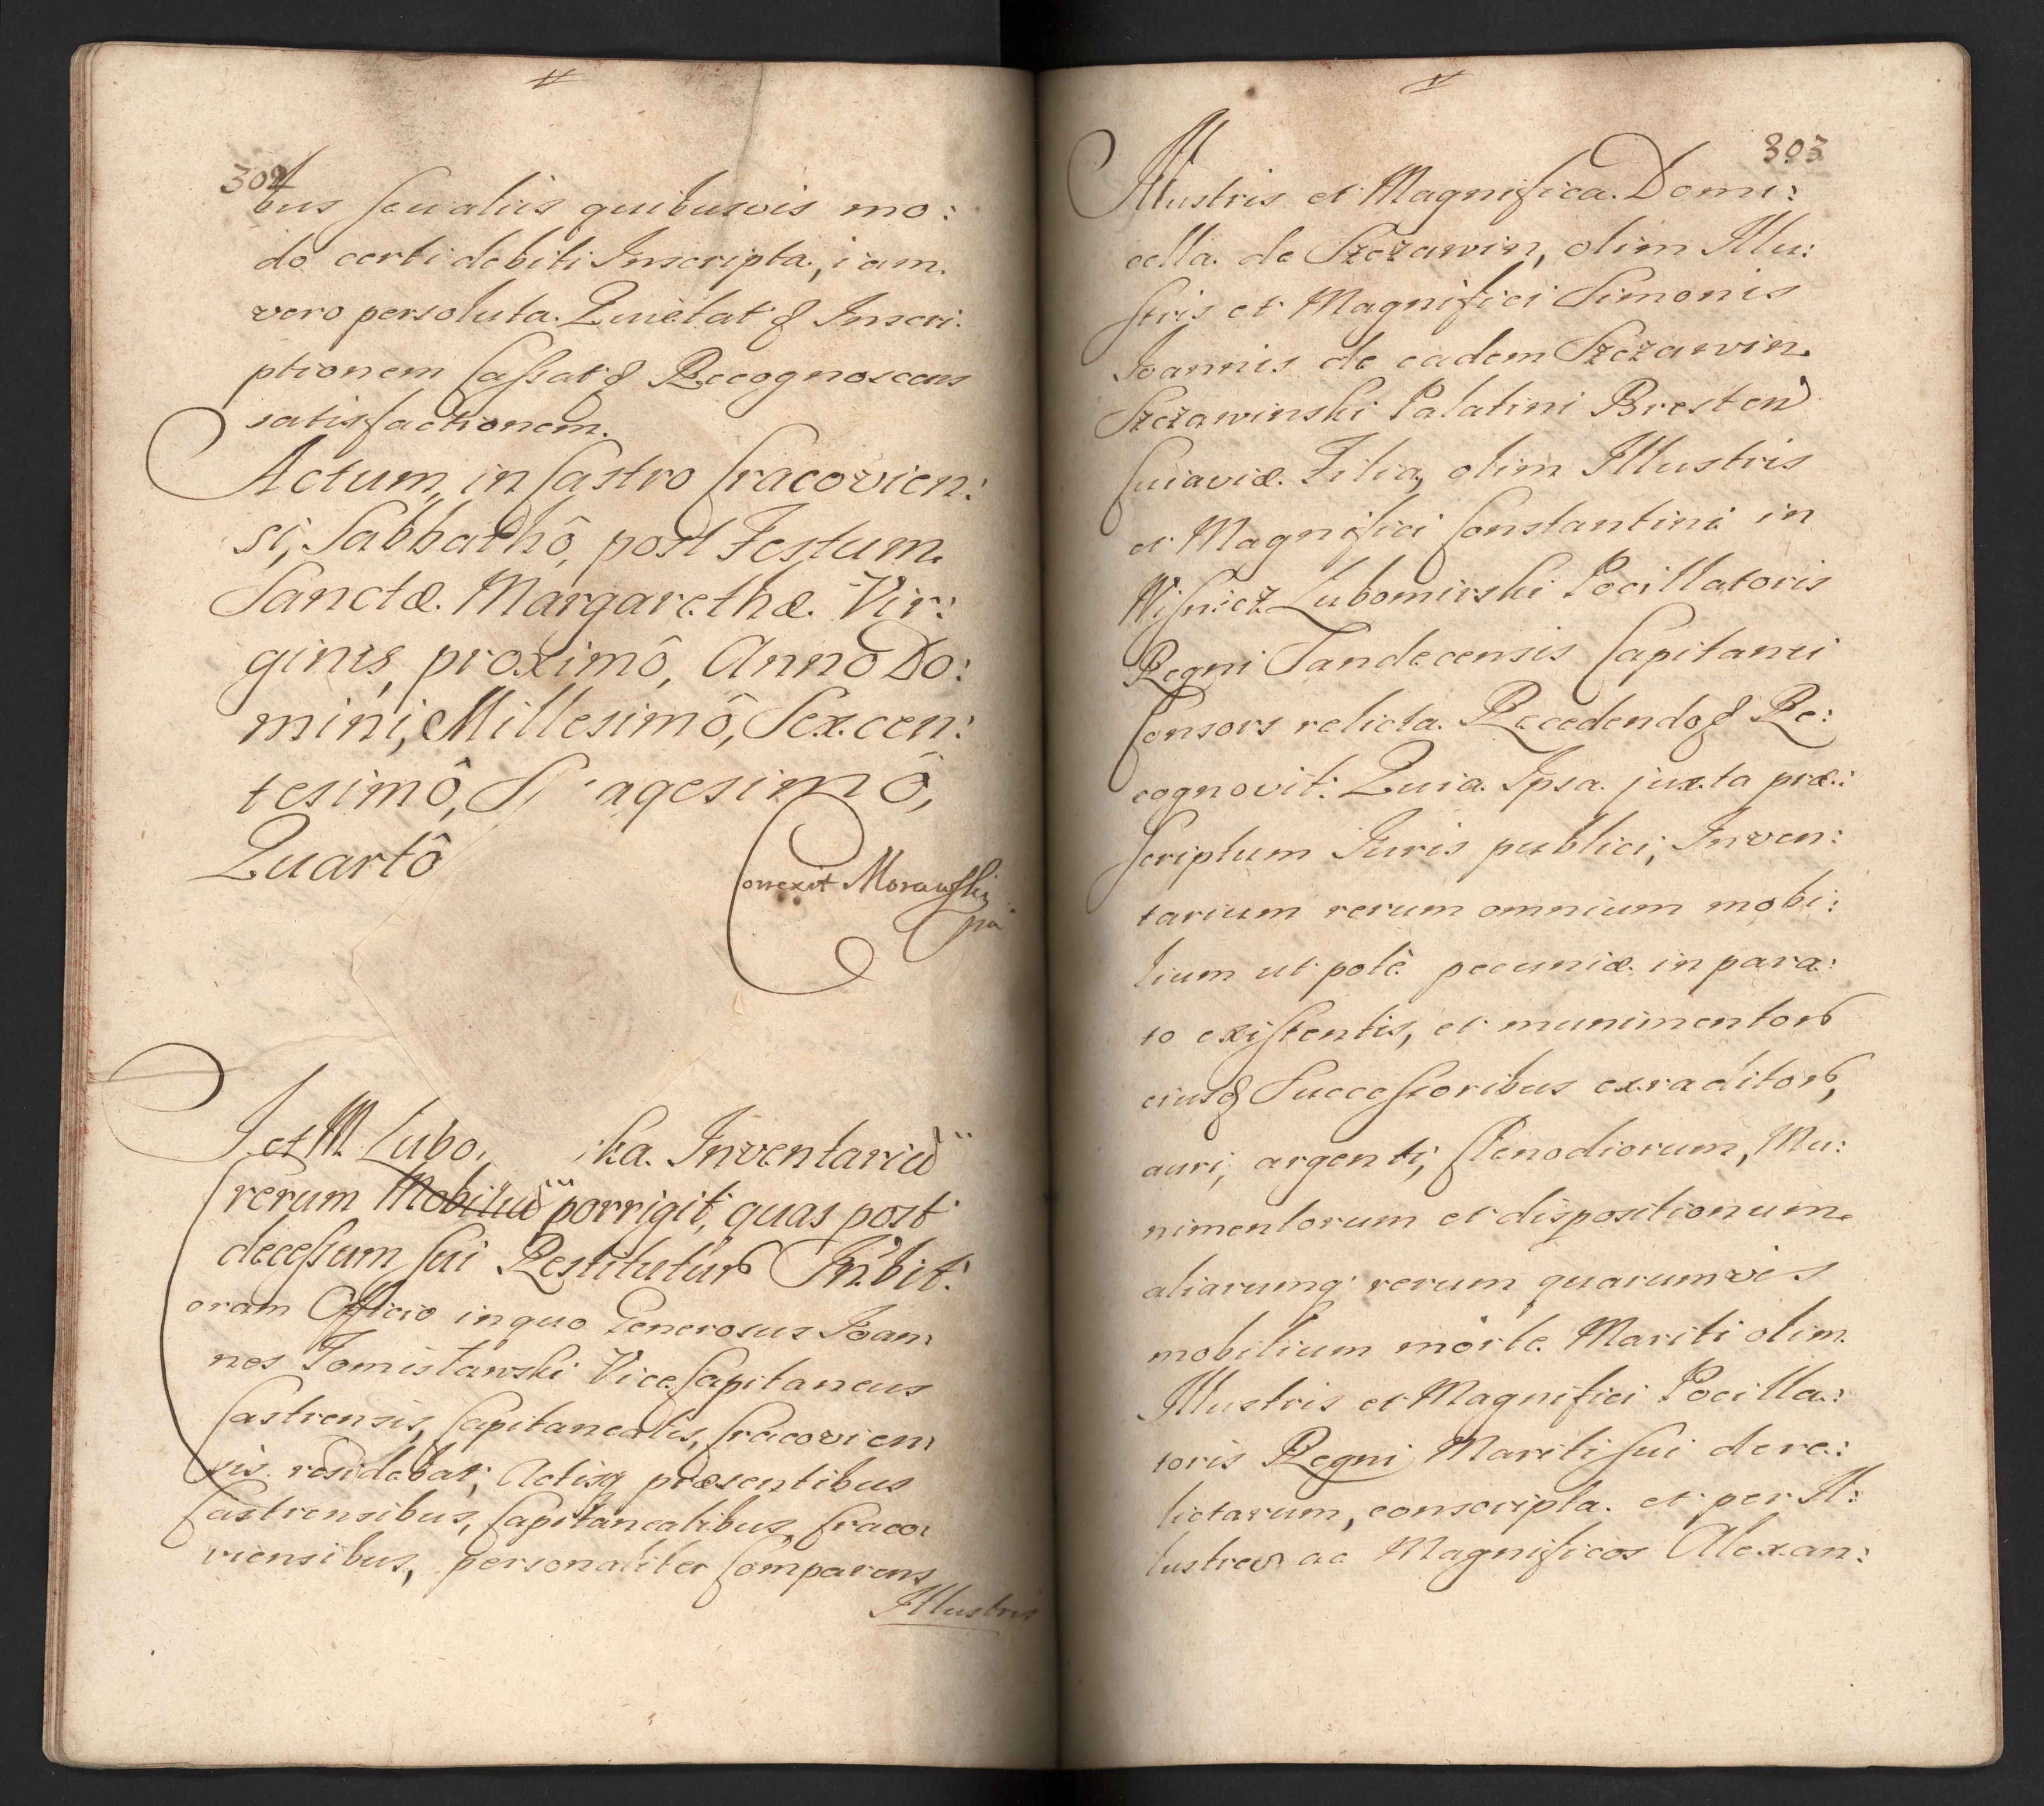 302
bus seu aliis quibusvis mo:
do certi debiti Inscripta, iam
vero persoluta. Quietat & Inscri:
ptionem Cassat & Recognoscens
satisfactionem.
Actum in Castro Cracovien:
si, Sabbathô, post Festum
Sanctæ Margarethæ Vir:
ginis, proximô, Annô Do:
mini, Millesimô, Sexcen:
tesimô, agesimô,
Quartô
Correxit Morawski
I. et M. Lubo ka. Inventariũ
rerum Mobiliũ porrigit, quas post
decessum sui
oram Officio in quo Generosus Joan:
nes Tomisławski Vice Capitaneus
Castrensis, Capitanealis, Cracovien:
sis residebat, Actisq præsentibus
Castrensibus, Capitanealibus Craco:
viensibus, personaliter Comparens
Illustris
303
Illustris et Magnifica Domi:
cella de Szczawin, olim Illu:
stris et Magnifici Simonis
Joannis de eadem Szczawin
Szczawinski Palatini Bresten
Cuiaviæ Filia, olim Illustris
et Magnifici Constantini in
Wisnicz Lubomirski Pocillatoris
Regni Sandecensis Capitanei
Consors relicta. Recedendo & Re:
cognovit: Quia Ipsa juxta præ:
scriptum Juris publici, Inven:
tarium rerum omnium mobi:
lium ut potè pecuniæ in para:
to existentis, et munimentor
eiusq Successoribus extraditor,
auri, argenti, Clenodiorum, Mu:
nimentorum et dispositionum
aliarumq rerum quarumvis
mobilium morte Mariti olim
Illustris et Magnifici Pocilla:
toris Regni Mariti sui dere:
lictarum, conscripta et per Il:
lustres ac Magnificos Alexan: